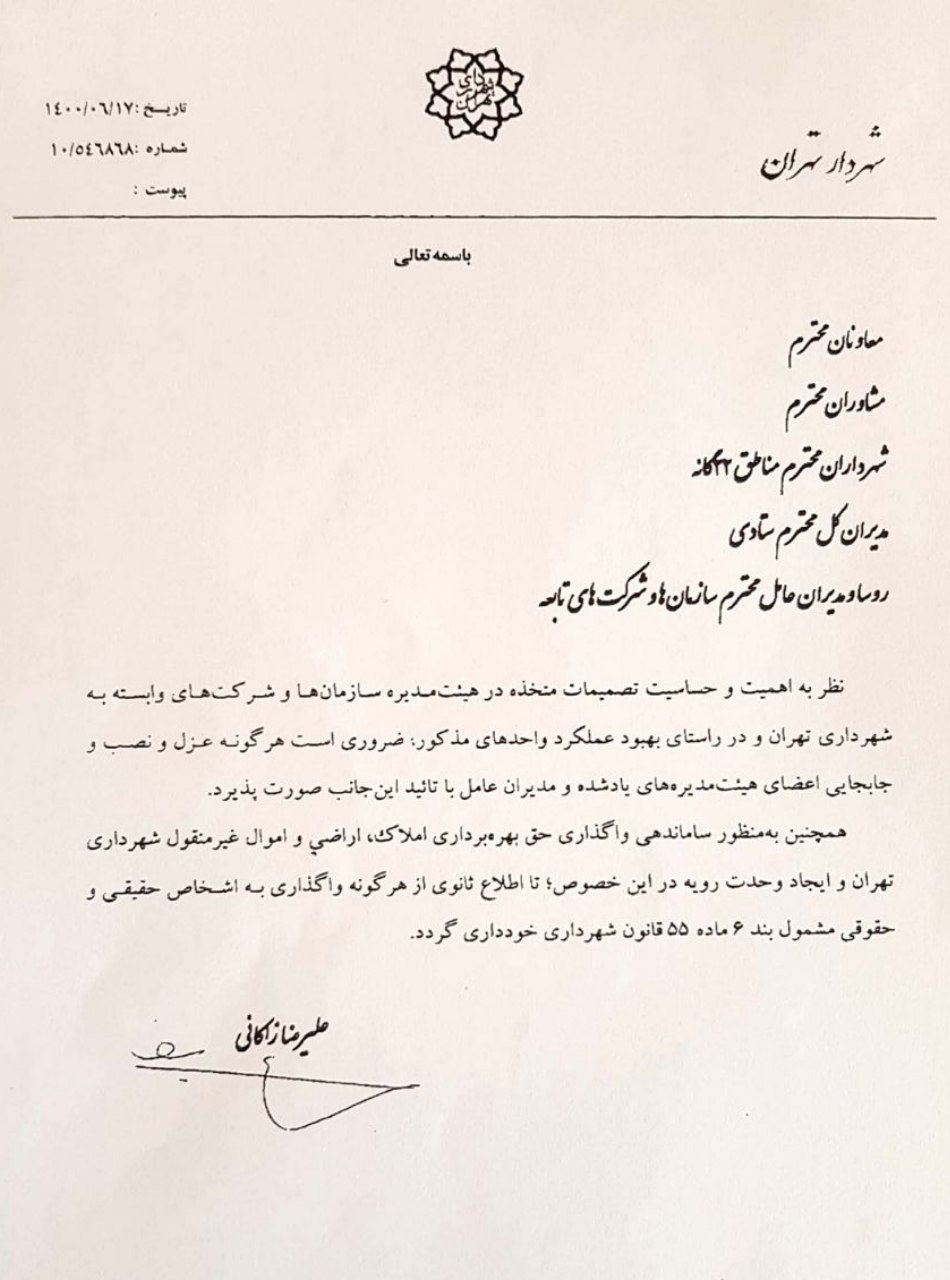 شهرداری تهران
تاریخ :۱۴۰۰/۰۶/۱۷
شماره :۱۰/۵۴۶۸۶۸
پیوست :
شهردار تهران
باسمه تعالی
معاونان محترم
مشاوران محترم
شهرداران محترم مناطق ۲۲گانه
مدیران کل محترم ستادی
روسا و مدیران عامل محترم سازمان ها و شرکت های تابعه
نظر به اهمیت و حساسیت تصمیمات متخذه در هیئت‌مدیره سازمان‌ها و شرکت‌های وابسته به
شهرداری تهران و در راستای بهبود عملکرد واحدهای مذکور؛ ضروری است هرگونه عزل و نصب و
جابجایی اعضای هیئت‌مدیره‌های یادشده و مدیران عامل با تائید این‌جانب صورت پذیرد.
همچنین به‌منظور ساماندهی واگذاری حق بهره‌برداری املاک، اراضي و اموال غیرمنقول شهرداری
تهران و ایجاد وحدت رویه در این خصوص؛ تا اطلاع ثانوی از هرگونه واگذاری به اشخاص حقیقی و
حقوقی مشمول بند ۶ ماده ۵۵ قانون شهرداری خودداری گردد.
علیرضا زاکانی